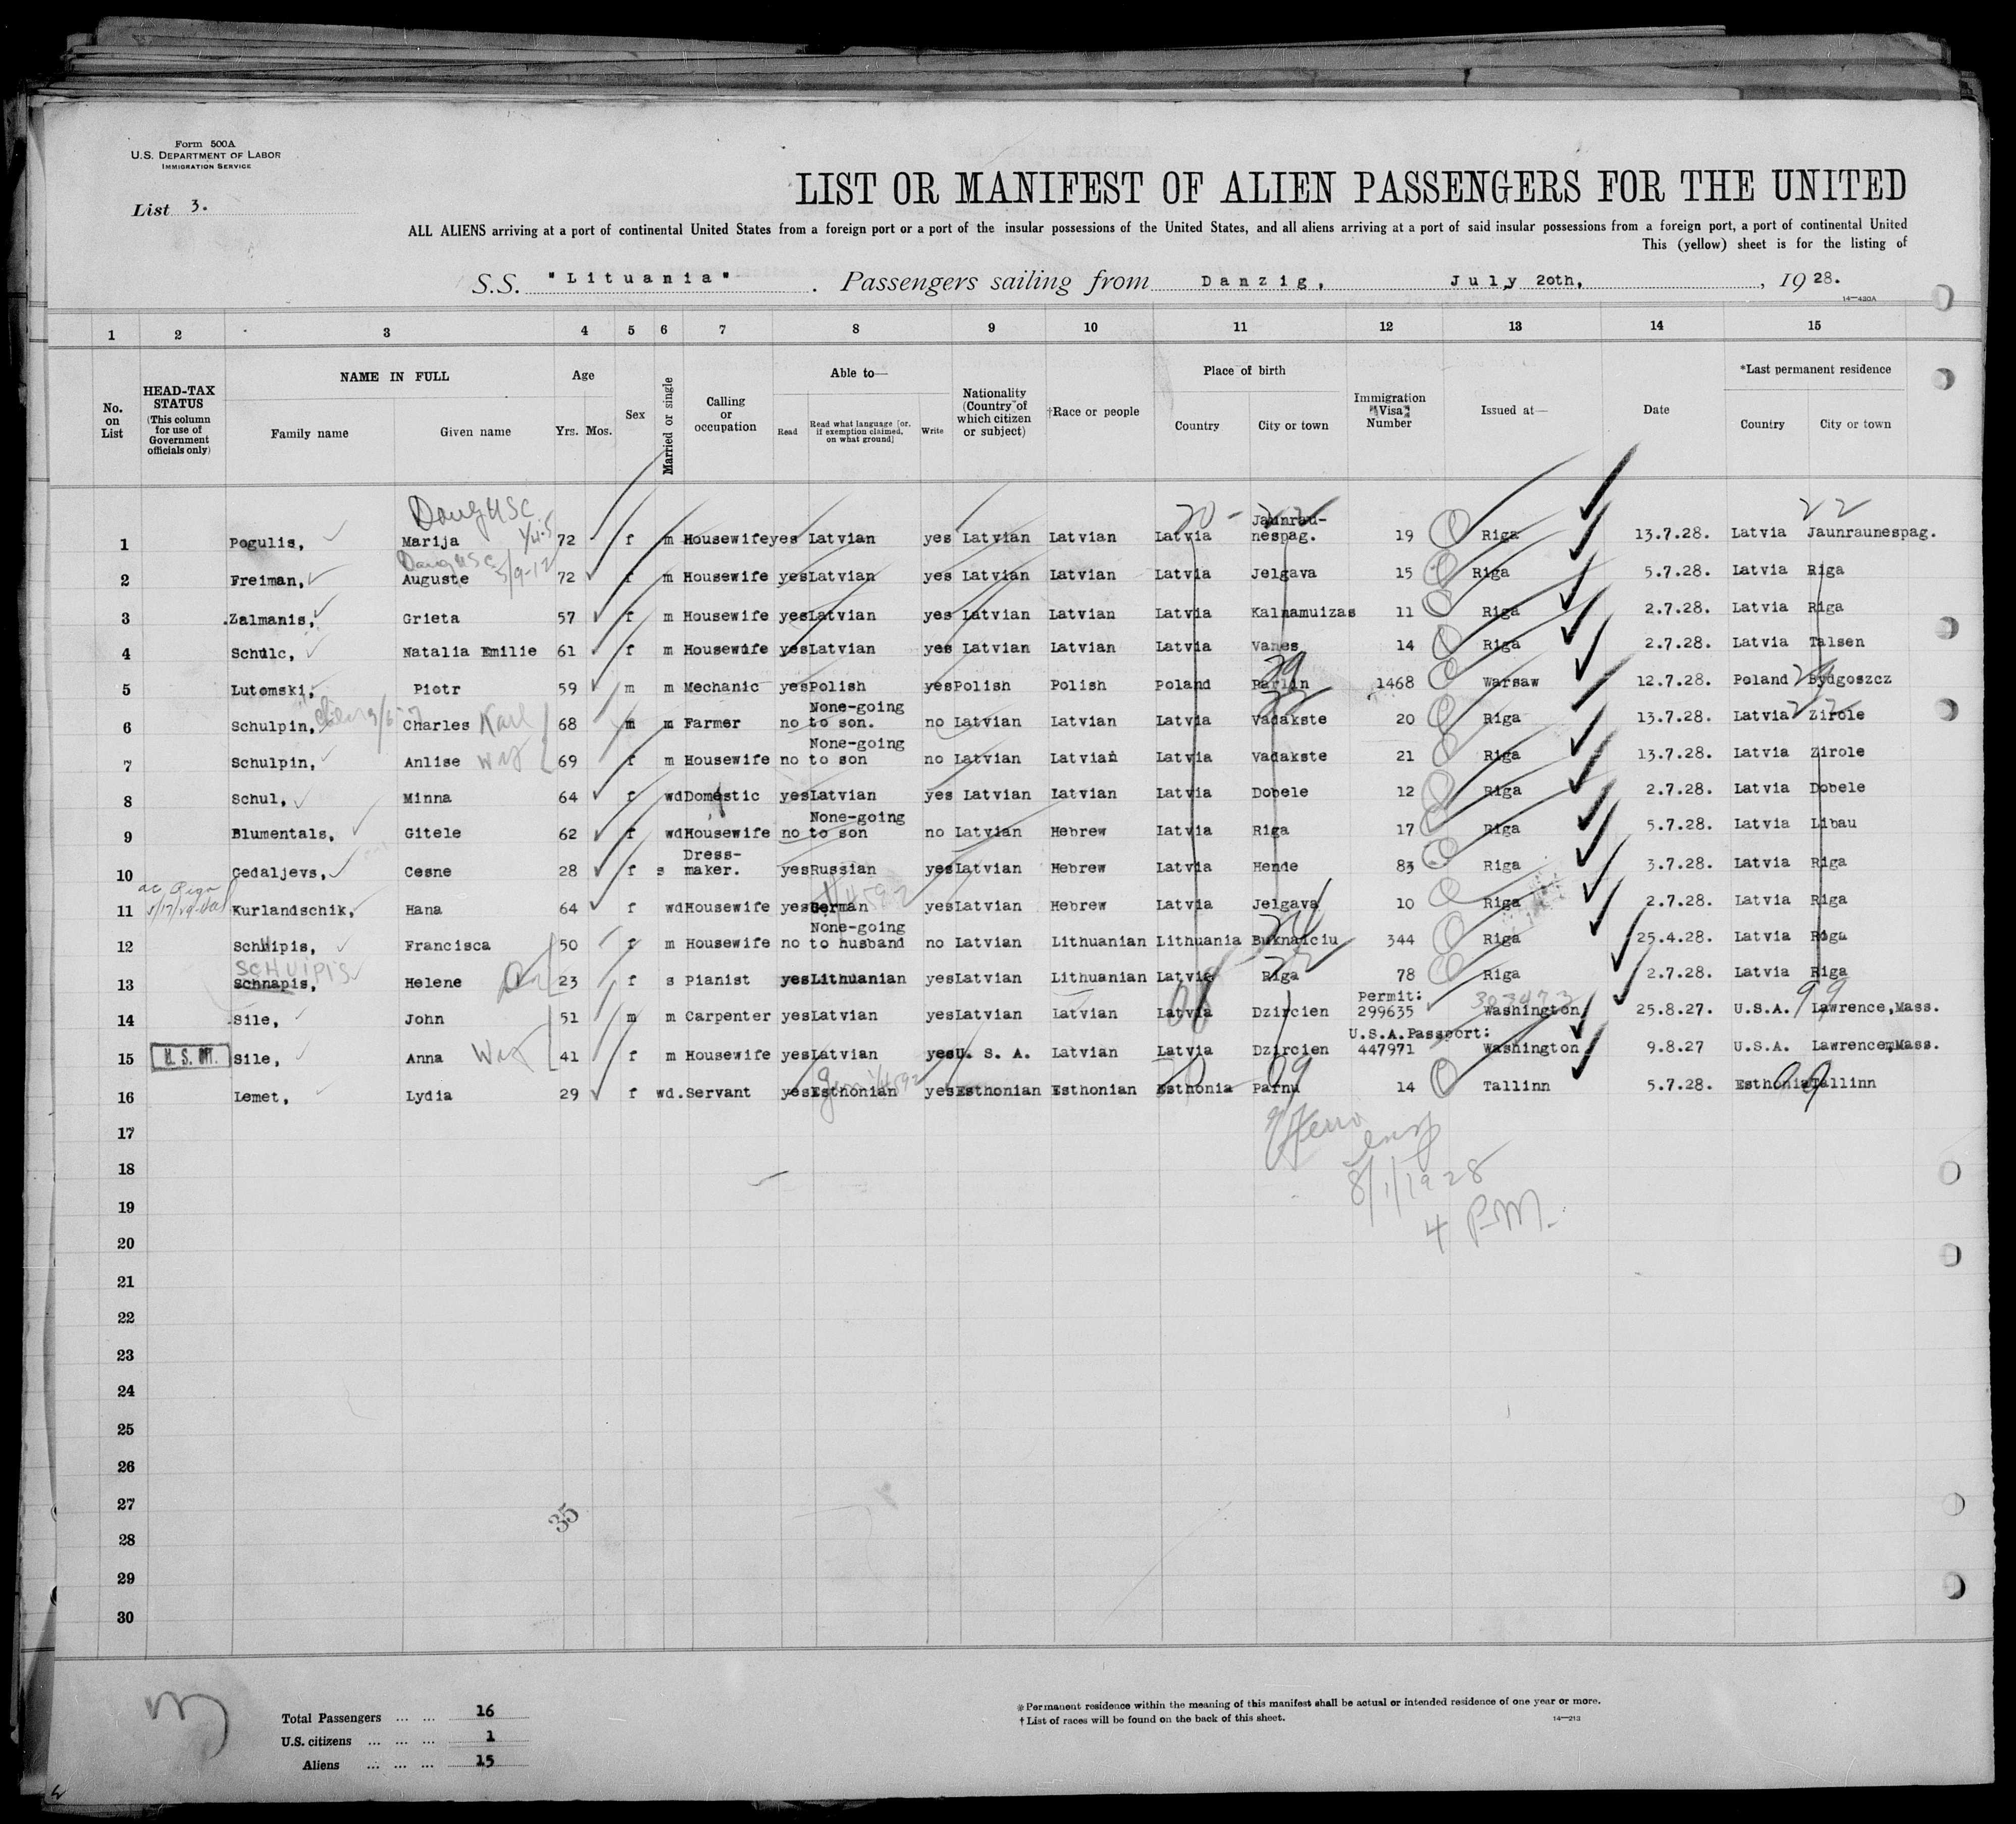 Form 500A
U.S. DEPARTMENT OF LABOR
IMMIGRATION SERVICE
List 3.
LIST OR MANIFEST OF ALIEN PASSENGERS FOR THE UNITED
ALL ALIENS arriving at a port of continental United States from a foreign port or a port of the insular possessions of the United States, and all aliens arriving at a port of said insular possessions from a foreign port, a port of continental United
This (yellow) sheet is for the listing of
S.S. "Lituania". Passengers sailing from Danzig, July 20th, , 1928.
14—430A
1 2 3 4 5 6 7 8 9 10 11 12 13 14 15
No. on List
HEAD-TAX STATUS (This column for use of Government officials only)
NAME IN FULL
Family name Given name
Age
Yrs. Mos.
Sex
Married or single
Calling or occupation
Able to—
Read Read what language [or, if exemption claimed, on what ground] Write
Nationality (Country of which citizen or subject)
†Race or people
Place of birth
Country City or town
Immigration Visa Number
Issued at—
Date
*Last permanent residence
Country City or town
Daug USC 20 - 22
1 Pogulis, Marija 72 f m Housewife yes Latvian yes Latvian Latvian Latvia Jaunrau-nespag. 19 Riga 13.7.28. Latvia Jaunraunespag.
Daug USC 5/9-12
2 Freiman, Auguste 72 f m Housewife yes Latvian yes Latvian Latvian Latvia Jelgava 15 Riga 5.7.28. Latvia Riga
3 Zalmanis, Grieta 57 f m Housewife yes Latvian yes Latvian Latvian Latvia Kalnamuizas 11 Riga 2.7.28. Latvia Riga
4 Schulc, Natalia Emilie 61 f m Housewife yes Latvian yes Latvian Latvian Latvia Vanes 14 Riga 2.7.28. Latvia Talsen
5 Lutomski, Piotr 59 m m Mechanic yes Polish yes Polish Polish Poland Parlin 1468 Warsaw 12.7.28. Poland Bydgoszcz
6 Schulpin, Charles Karl 68 m m Farmer no None-going to son. no Latvian Latvian Latvia Vadakste 20 Riga 13.7.28. Latvia Zirole
7 Schulpin, Anlise 69 f m Housewife no None-going to son no Latvian Latvian Latvia Vadakste 21 Riga 13.7.28. Latvia Zirole
8 Schul, Minna 64 f wd Domestic yes Latvian yes Latvian Latvian Latvia Dobele 12 Riga 2.7.28. Latvia Dobele
9 Blumentals, Gitele 62 f wd Housewife no None-going to son no Latvian Hebrew Latvia Riga 17 Riga 5.7.28. Latvia Libau
10 Cedaljevs, Cesne 28 f s Dress-maker. yes Russian yes Latvian Hebrew Latvia Hende 83 Riga 3.7.28. Latvia Riga
11 Kurlandschik, Hana 64 f wd Housewife yes German yes Latvian Hebrew Latvia Jelgava 10 Riga 2.7.28. Latvia Riga
12 Schuipis, Francisca 50 f m Housewife no None-going to husband no Latvian Lithuanian Lithuania Buknaiciu 344 Riga 25.4.28. Latvia Riga
SCHUIPIS
13 Schnapis, Helene 23 f s Pianist yes Lithuanian yes Latvian Lithuanian Latvia Riga 78 Riga 2.7.28. Latvia Riga
14 Sile, John 51 m m Carpenter yes Latvian yes Latvian Latvian Latvia Dzircien Permit: 299635 303473 Washington 25.8.27. U.S.A. Lawrence, Mass.
15 Sile, Anna 41 f m Housewife yes Latvian yes U. S. A. Latvian Latvia Dzircien U.S.A. Passport: 447971 Washington 9.8.27 U.S.A. Lawrence, Mass.
16 Lemet, Lydia 29 f wd. Servant yes Esthonian yes Esthonian Esthonian Esthonia Parnu 14 Tallinn 5.7.28. Esthonia Tallinn
17
18
8/1/1928
19
4 P.M.
20
21
22
23
24
25
26
27
35
28
29
30
Total Passengers ... ... 16
U.S. citizens ... ... ... 1
Aliens ... ... ... 15
* Permanent residence within the meaning of this manifest shall be actual or intended residence of one year or more.
† List of races will be found on the back of this sheet.
14—213